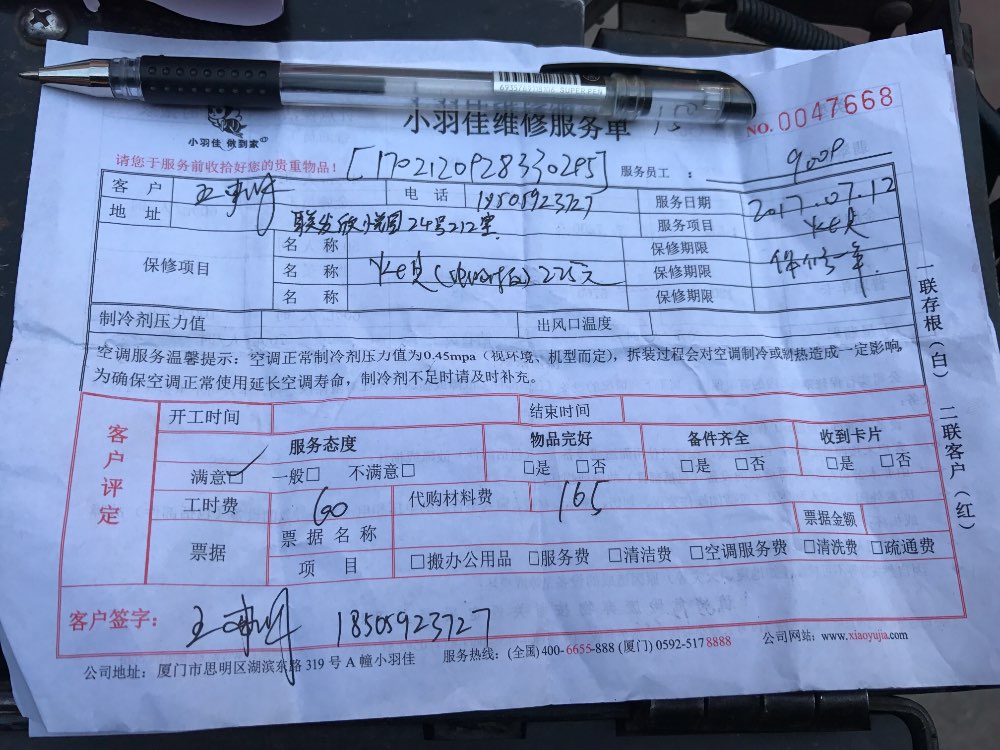 6937697119106 SUPERPEN
小羽佳 做到家
小羽佳维修服务单 150
NO. 0047668
请您于服务前收拾好您的贵重物品!
[1702120928330295]
服务员工 : 900P
客户 电话 18505923727 服务日期 2017.07.12
地址 联发欣 24号212室 服务项目
保修项目 名称 保修期限
名称 225元 保修期限 保修一年
名称 保修期限
制冷剂压力值 出风口温度
空调服务温馨提示:空调正常制冷剂压力值为0.45mpa(视环境、机型而定),拆装过程会对空调制冷或制热造成一定影响,
为确保空调正常使用延长空调寿命,制冷剂不足时请及时补充。
一联存根(白) 二联客户(红)
客户评定
开工时间 结束时间
服务态度 物品完好 备件齐全 收到卡片
满意☑ 一般□ 不满意□ □是 □否 □是 □否 □是 □否
工时费 60 代购材料费 165
票据 票据名称 票据金额
项目 □搬办公用品 □服务费 □清洁费 □空调服务费 □清洗费 □疏通费
客户签字: 18505923727
公司地址:厦门市思明区湖滨东路 319 号 A 幢小羽佳 服务热线:(全国)400-6655-888 (厦门) 0592-517 8888 公司网站:www.xiaoyujia.com